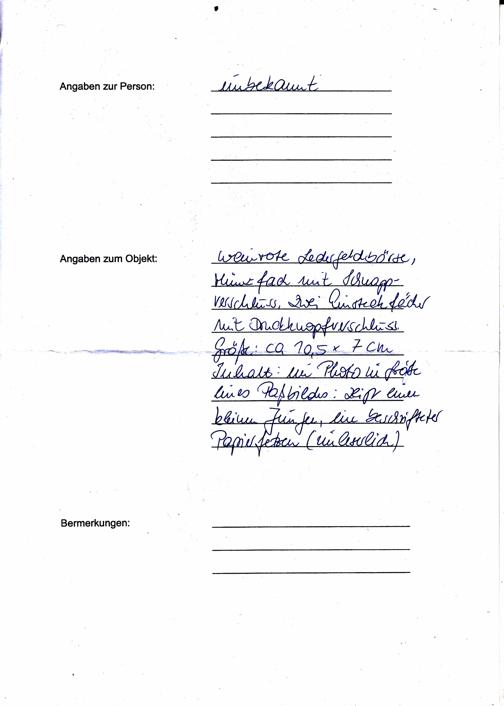 Angaben zur Person:
unbekannt
Angaben zum Objekt:
weinrote Ledergeldbörse,
Münzfach mit Schnapp-
verschluss, zwei Einsteckfächer
mit Druckknopfverschluss
Größe: ca 10,5 x 7 cm
Inhalt: ein Photo in Größe
eines Paßbildes: zeigt einen
kleinen Jungen, ein beschrifteter
Papierfetzen (unleserlich)
Bermerkungen: